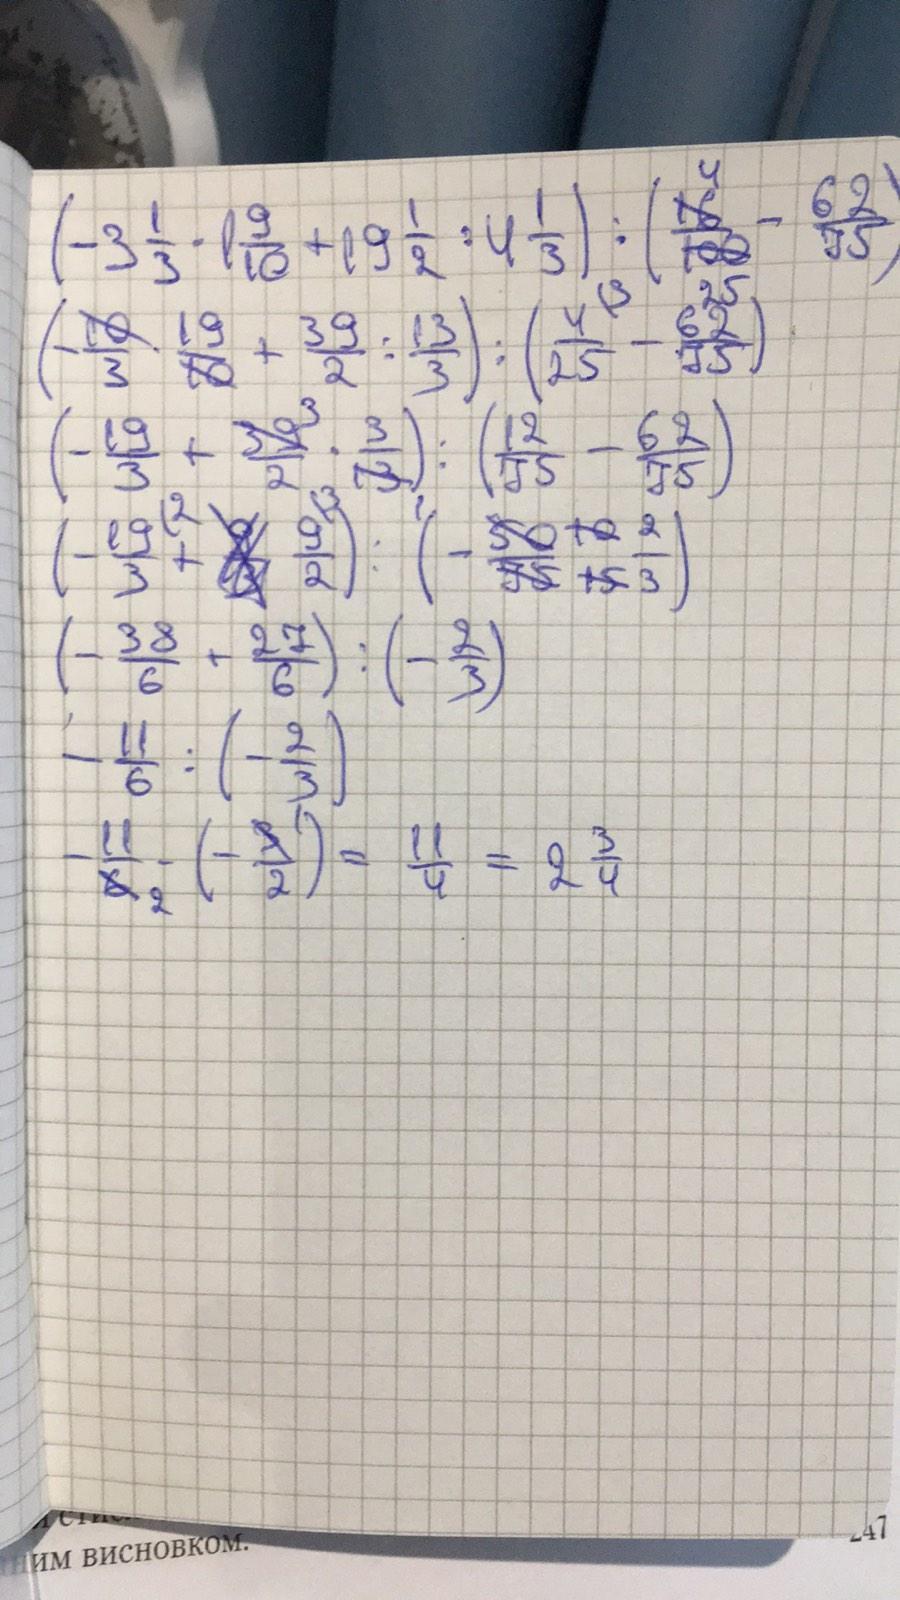 (-3 1/3 · 1 9/10 + 19 1/2 : 4 1/3) : (16/100 4/25 - 62/75)
(-10/3 · 19/10 + 39/2 : 13/3) : (4/25 (3 - 62/75)
(-19/3 + 39/2 3 · 3/13) : (12/75 - 62/75)
(-19/3 (2 + 9/2 (3) : (-50/75 10/15 2/3)
(-38/6 + 27/6) : (-2/3)
-11/6 : (-2/3)
-11/6 2 · (-3/2) = 11/4 = 2 3/4
НИМ ВИСНОВКОМ.
247